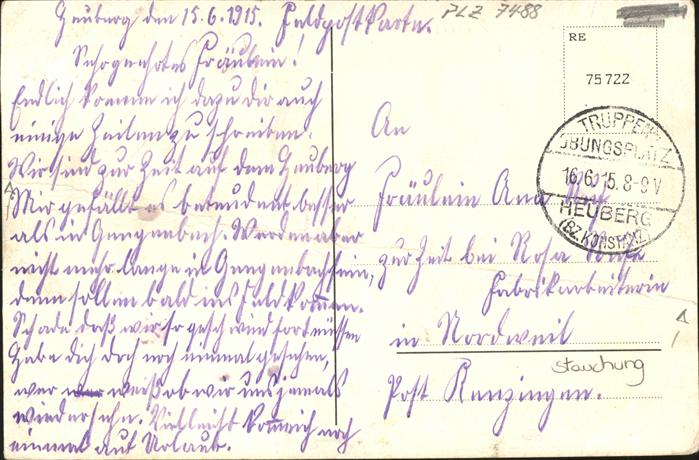 Heuberg den 15.6.1915. Feldpostkarte.
PLZ 7488
Sehrgeehrtes Fräulein!
Endlich komme ich dazu dir auch
einige Zeilen zu schreiben.
Wir sind zur Zeit auf dem Heuberg
Mir gefällt es bedeutend besser
als in Gengenbach. Werden aber
nicht mehr lange in Gengenbach sein,
denn sollen bald ins Feld kommen.
Schade daß wir so geschwind fort müssen
Habe dich doch noch einmal gesehen,
wer weiß ob wir uns jemals
wiedersehn. Vielleicht komme ich noch
einmal auf Urlaub.
RE
75 722
TRUPPEN-
ÜBUNGSPLATZ
16.6.15. 8-9 V
HEUBERG
(BZ. KONSTANZ)
An
Fräulein Anna
zur Zeit bei Rosa
Fabrikarbeiterin
in Nordweil
Stauchung
Post Kenzingen.